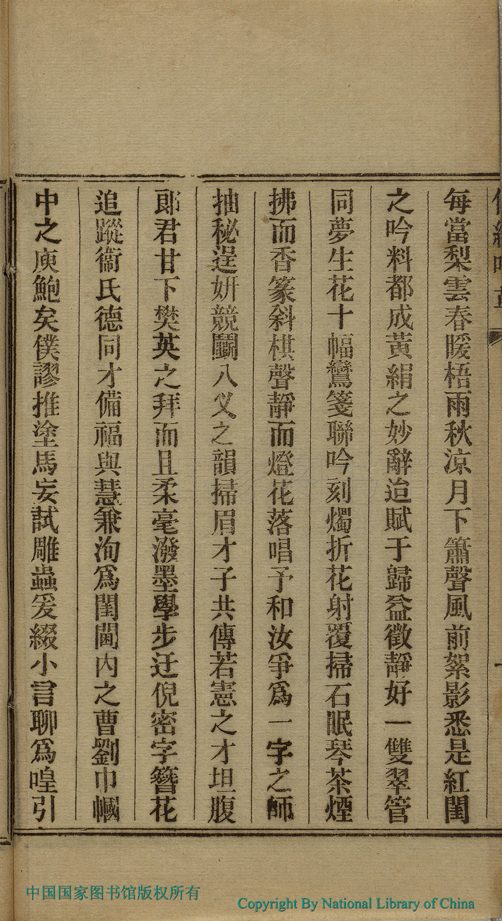 每當梨雲春暖梧雨秋涼月下簫聲風前絮影悉是紅閨
之吟料都成黃絹之妙辭迨賦于歸益徵靜好一雙翠管
同夢生花十幅鸞箋聯吟刻燭折花射覆掃石眠琴茶煙
拂而香篆斜棋聲靜而燈花落唱予和汝爭爲一字之師
抽秘逞妍競鬭八乂之韻掃眉才子共傳若憲之才坦腹
郎君甘下樊英之拜而且柔毫潑墨學步迂倪密字簪花
追蹤衞氏德同才備福與慧兼洵爲閨閫內之曹劉巾幗
中之庾鮑矣僕謬推塗馬妄試雕蟲爰綴小言聊爲喤引
中国国家图书馆版权所有
Copyright By National Library of China